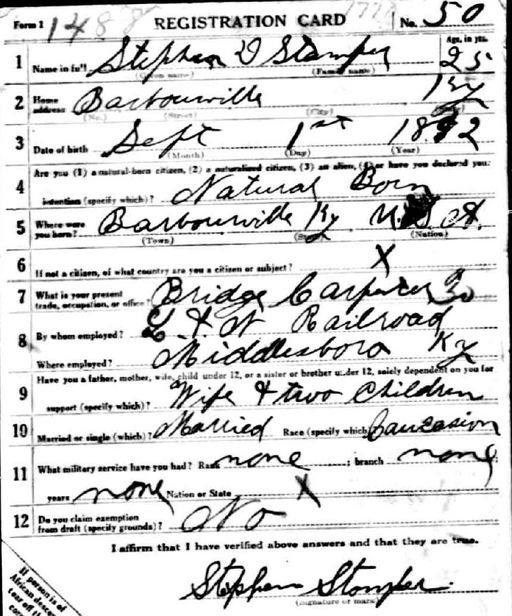 Form 1 1488 REGISTRATION CARD No. 50
1 Name in full Stephen D Stamper Age, in yrs. 25
(Given name) (Family name)
2 Home address Barbourville Ky
(No.) (Street) (City)
3 Date of birth Sept 1st 1892
(Month) (Day) (Year)
4 Are you (1) a natural-born citizen, (2) a naturalized citizen, (3) an alien, (4) or have you declared your
intention (specify which)? Natural Born
5 Where were you born? Barbourville Ky U.S.A.
(Town) (Nation)
6 If not a citizen, of what country are you a citizen or subject? X
7 What is your present trade, occupation, or office? Bridge Carpenter
8 By whom employed? L & N Railroad
Where employed? Middlesboro Ky
9 Have you a father, mother, wife, child under 12, or a sister or brother under 12, solely dependent on you for
support (specify which)? Wife & two Children
10 Married or single (which)? Married Race (specify which) Caucasion
11 What military service have you had? Rank none ; branch none
years none Nation or State X
12 Do you claim exemption from draft (specify grounds)? No
I affirm that I have verified above answers and that they are true.
Stephen Stamper
(Signature or mark)
If person is of
African descent
tear off this